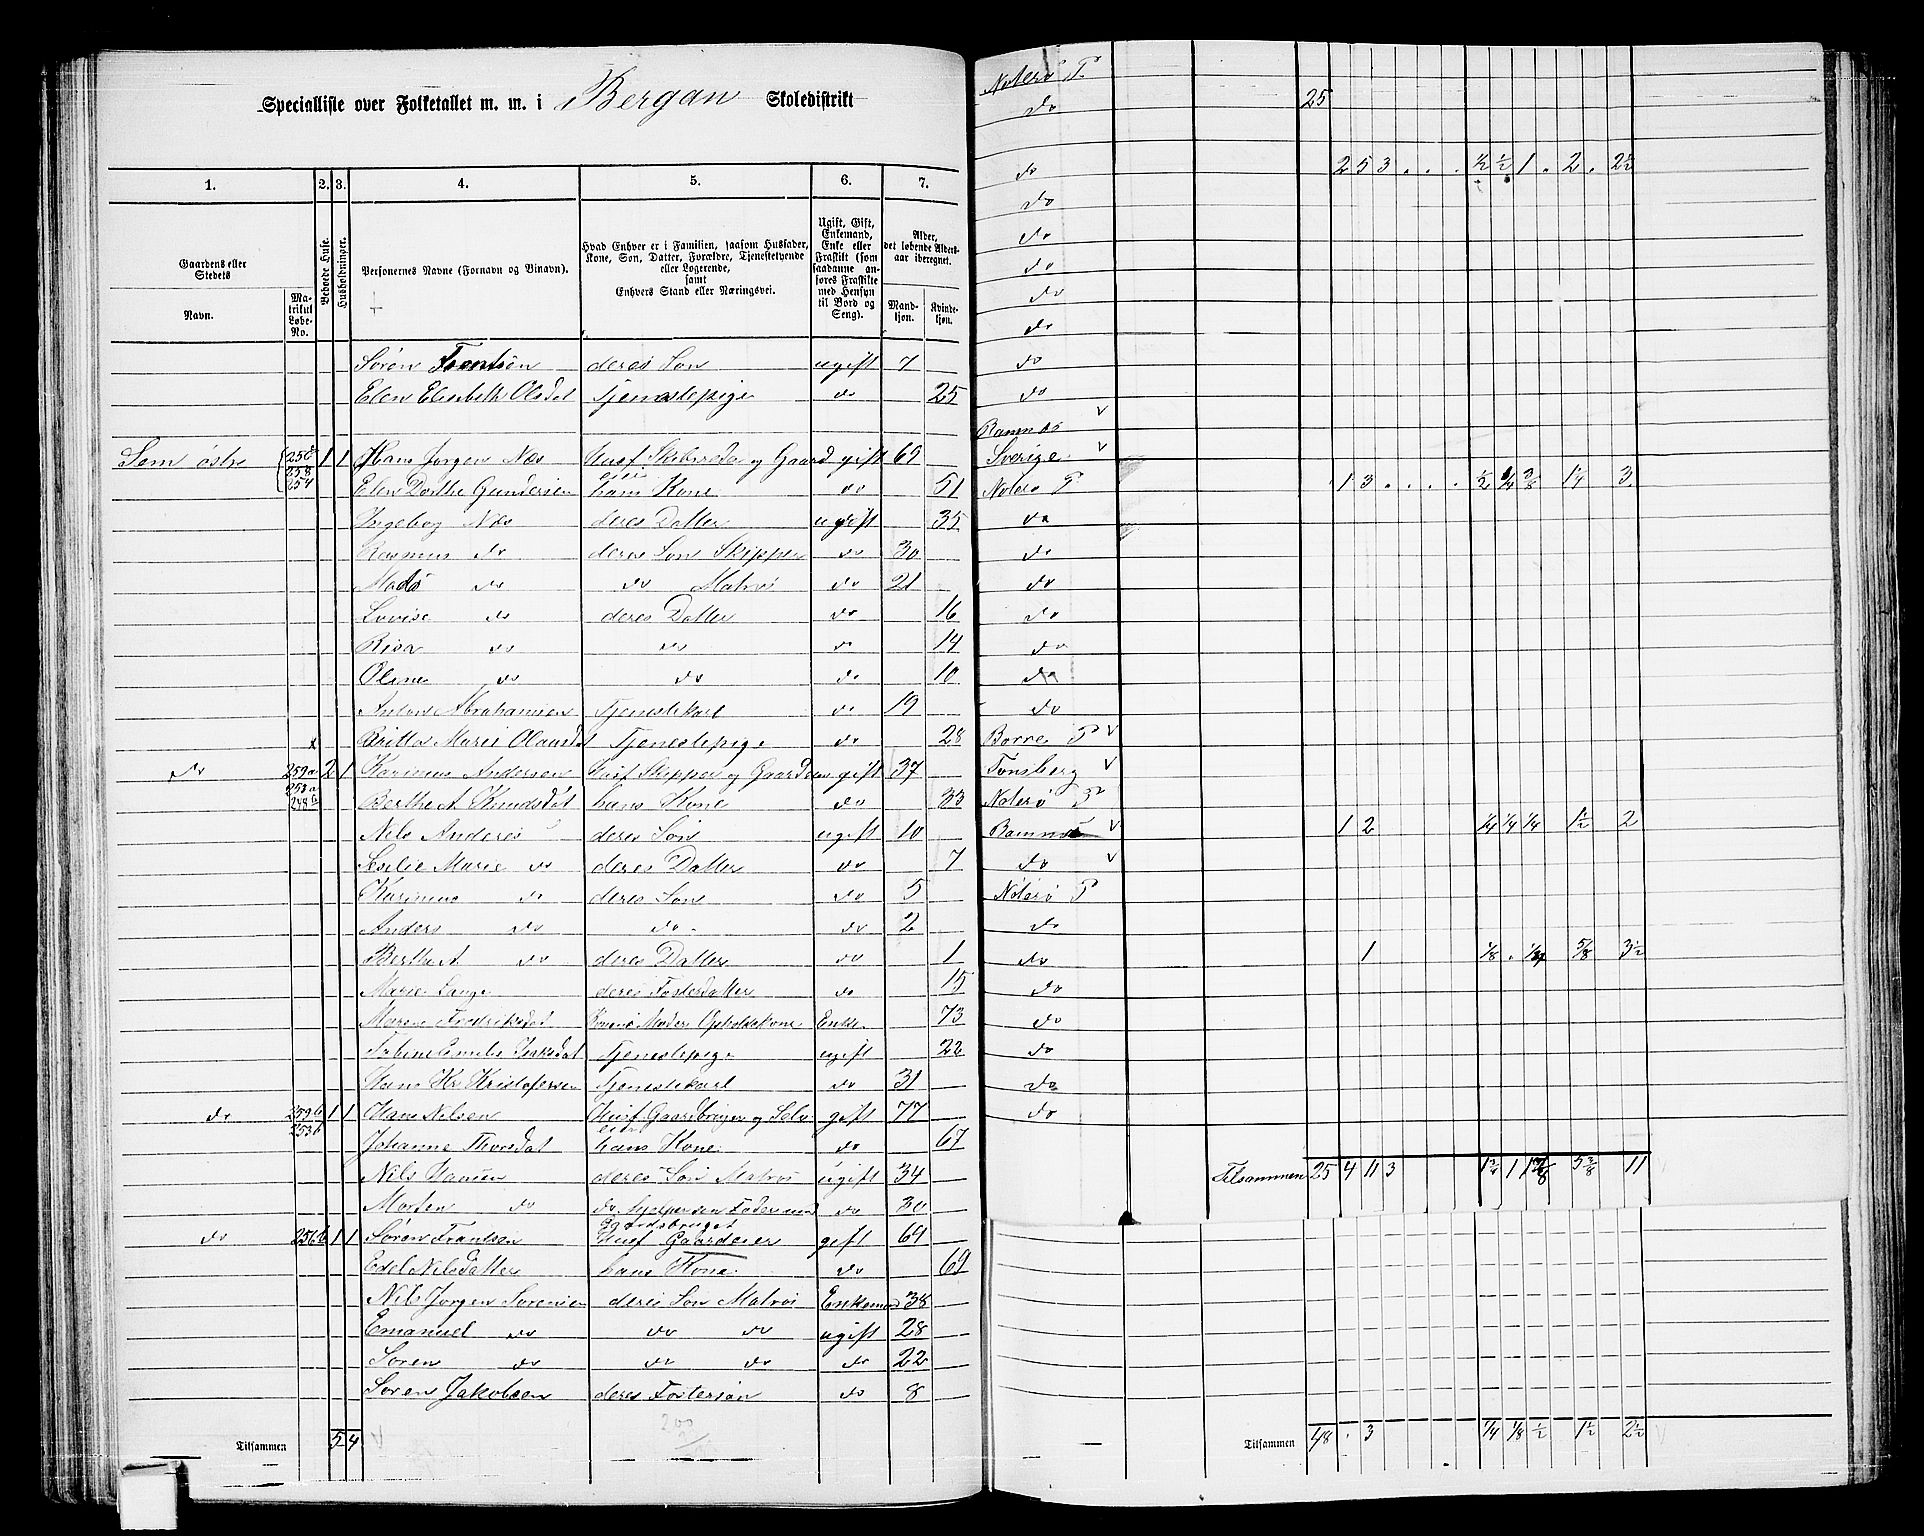 Specialliste over Folketallet m. m. i Bergan Skoledistrikt
1. 2. 3. 4. 5. 6. 7.
Gaardens eller Stedets
Navn.
Matrikul Løbe-No.
Beboede Huse.
Husholdninger.
Personernes Navne (Fornavn og Binavn).
Hvad Enhver er i Familien, saasom Husfader, Kone, Søn, Datter, Forældre, Tjenestetyende eller Logerende, samt Enhvers Stand eller Næringsvei.
Ugift, Gift, Enkemand, Enke eller Fraskilt (som saadanne anføres Fraskilte med Hensyn til Bord og Seng).
Alder, det løbende Alders-aar iberegnet.
Mandkjøn. Kvindekjøn.
Søren Frantsen deres Søn ugift 7
Elen Elisabeth Olsdat Tjenestepige do 25
Sem østre 256 1 1 Hans Jørgen Næs Husf Skibsreder og Gaard gift 69
258
254 Elen Dorthe Gundersen hans Kone do 51
Ingebog Næs deres Datter ugift 35
Rasmus do deres Søn Skipper do 30
Mads do do Matros do 21
Lovise do deres Datter do 16
Risa do do do 14
Oline do do do 10
Anton Abrahamsen Tjenestekarl do 19
x Britta Marie Olausdat Tjenestepige do 28
do 259a 2 1 Karinius Andersen Husf Skipper og Gaardeier gift 37
253a
248b Berthe A Knudsdat hans Kone do 33
Nils Anders deres Søn ugift 10
Emilie Marie do deres Datter do 7
Karinius do deres Søn do 5
Anders do do do 2
Berthe A do deres Datter do 1
Marie Lange deres Fosterdatter do 15
Maren Fredriksdat Konens Moder Opholdskone Enke 73
Sabine Emilie Isaksdat Tjenestepige ugift 22
Hans Kr Kristofersen Tjenestekarl do 31
do 259b 1 1 Hans Nilsen Husf Gaardbruger og Selveier gift 77
253b Johanne Thorsdat hans Kone do 67
Nils Hansen deres Søn Matros ugift 34
Morten do do hjelper sin Fader med Gaardsbruget do 30
do 256b 1 1 Søren Frantsen Husf Gaardeier gift 69
Edel Nilsdatter hans Kone do 69
Nils Jørgen Sørensen deres Søn Matros Enkemand 38
Emanuel do do do ugift 28
Søren do do do do 22
Søren Jakobsen deres Fostersøn do 8
Tilsammen 5 4
Nøterø P
do 25
do 2 5 3 . . . ½ ½ 1 . 2 . 2½
do
do
do
do
do
do
do
Ramnæs v
Sverige v
Nøterø P 1 3 . . . . ½ ¼ ⅜ 1¼ 3
do
do
do
do
do
do
do
Borre P v
Tønsberg v
Nøterø P
Ramnæs v 1 2 ¼ ¼ ¼ 1½ 2
do v
Nøterø P
do
do 1 ⅛ . ¼ ⅝ 3½
do
do
do
do
do
Tilsammen 25 4 11 3 1¾ 1 1⅜ 5⅜ 11
Tilsammen 48 . 3 ¼ ⅛ ½ 1½ 2½